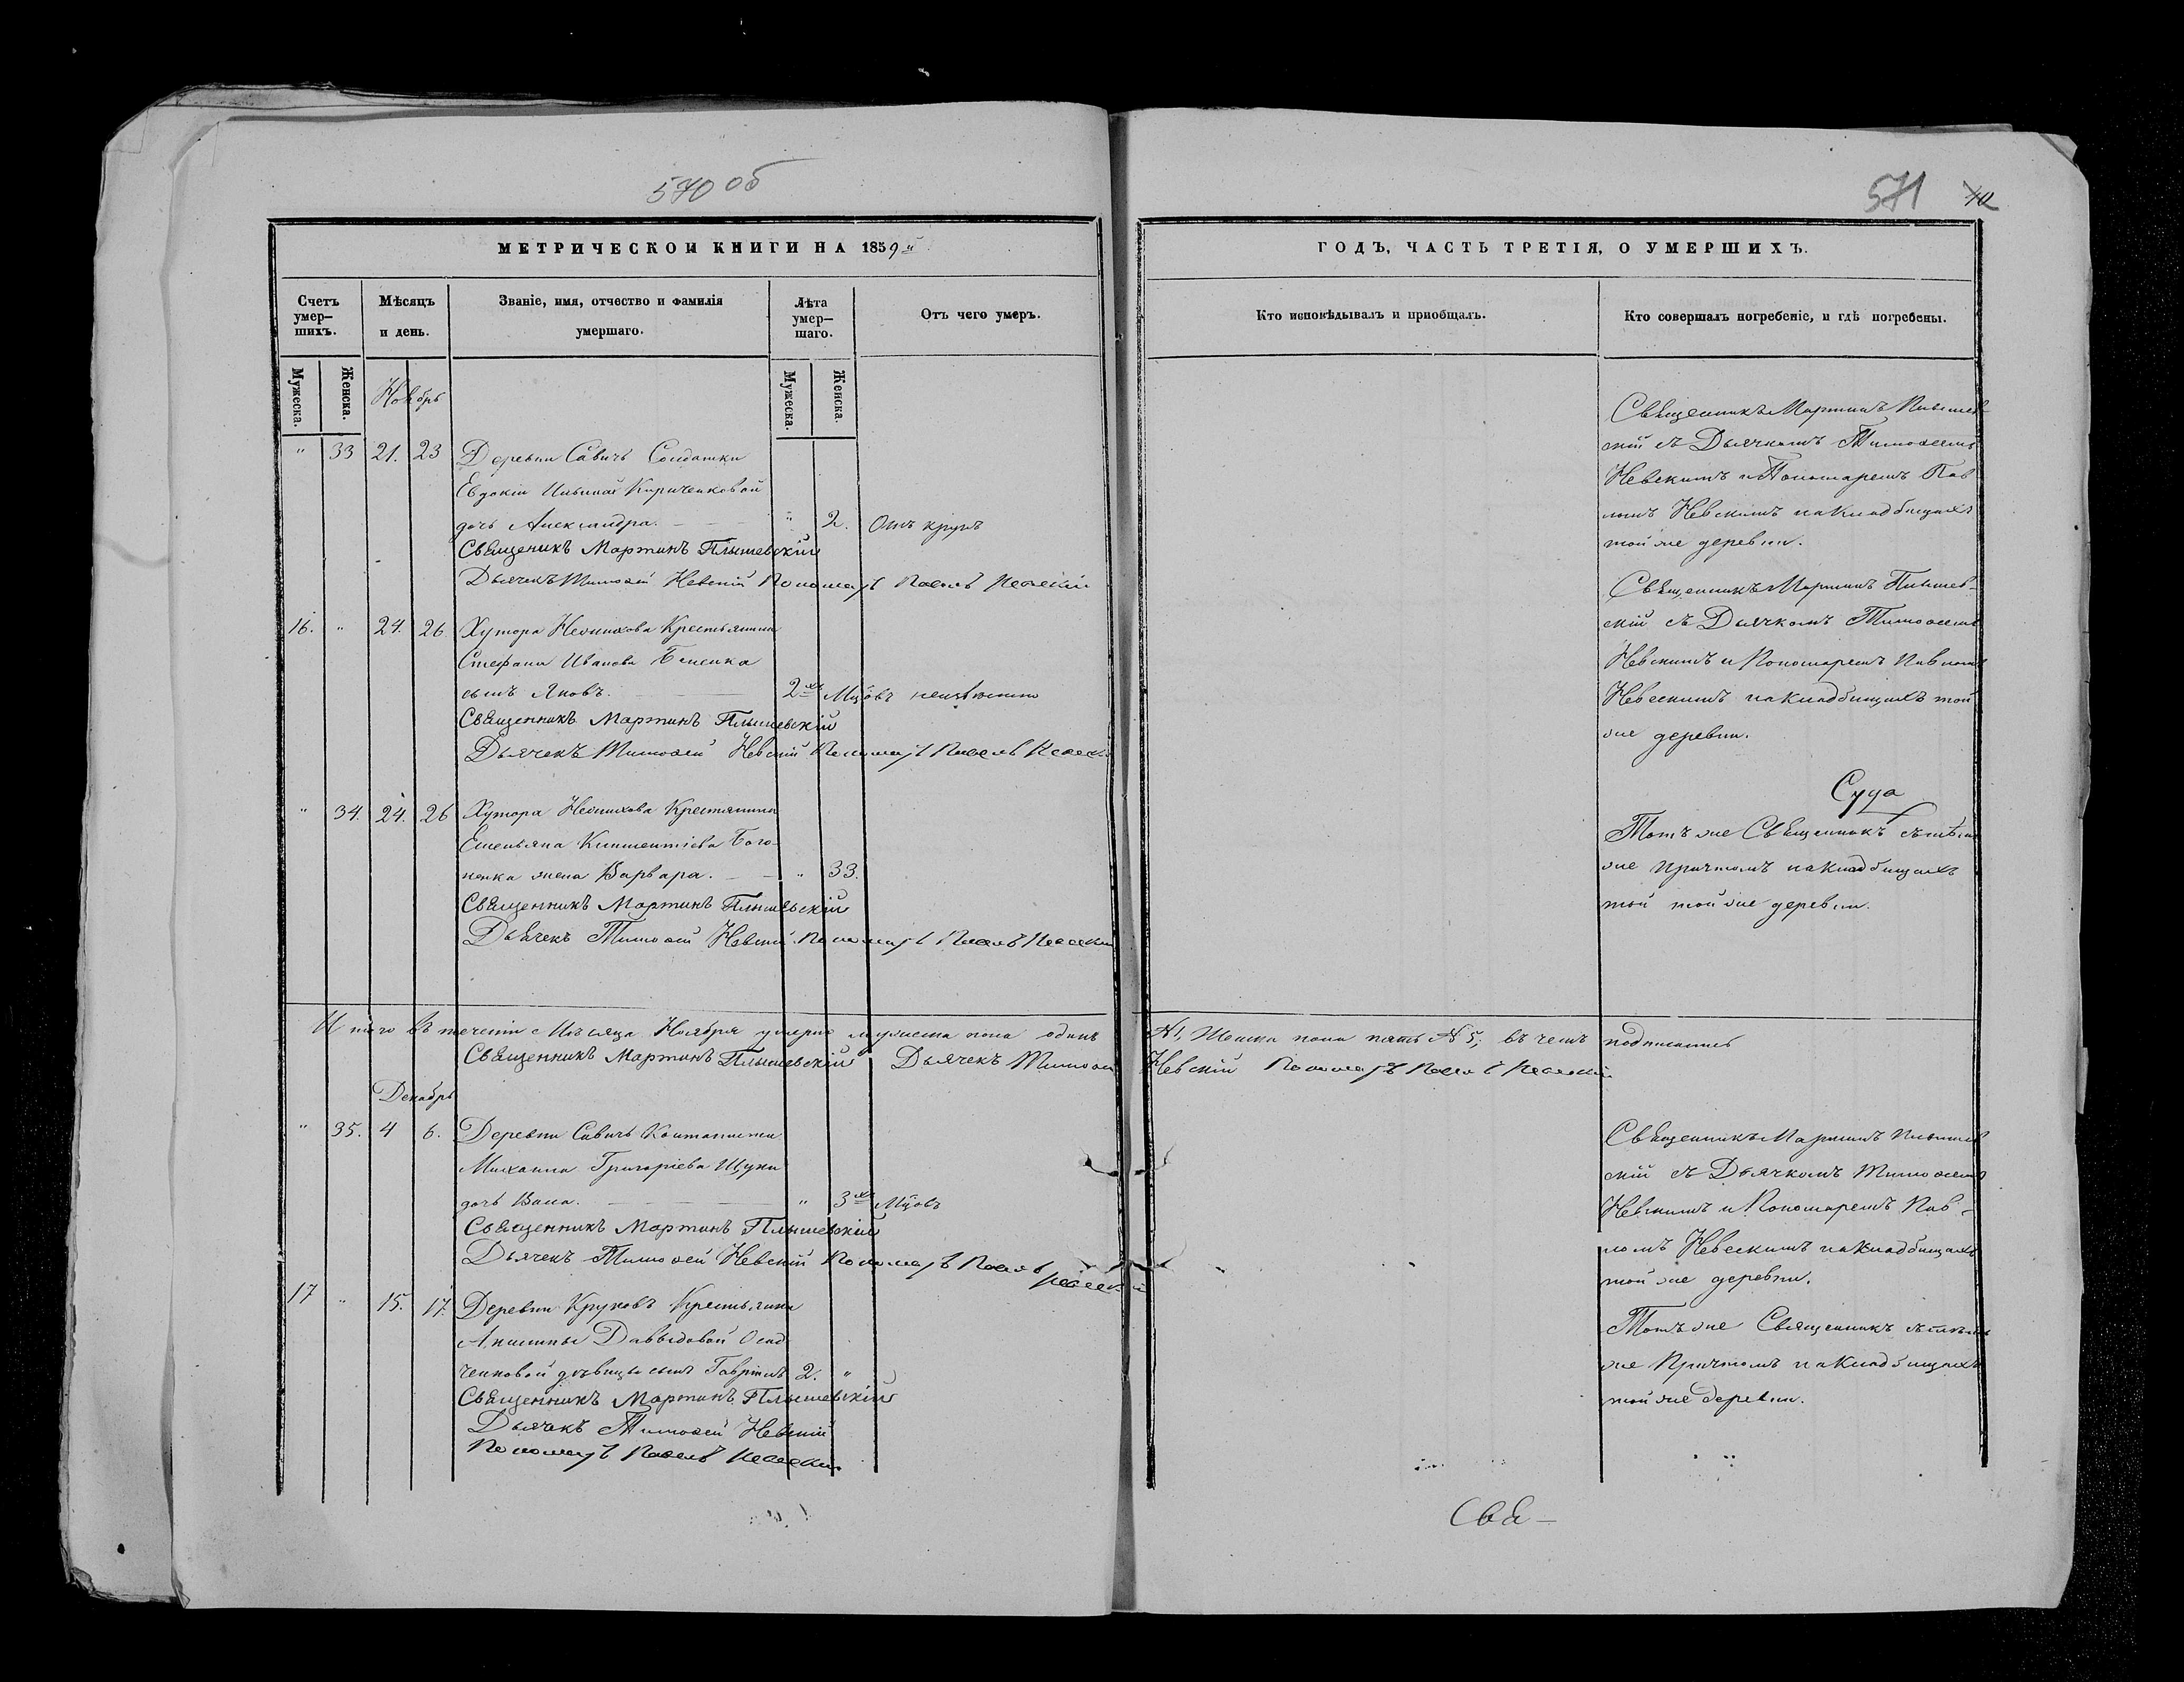 570 об
МЕТРИЧЕСКОЙ КНИГИ НА 1859й
Счетъ умер–шихъ.
Мѣсяцъ и день.
Званіе, имя, отчество и фамилія умершаго.
Лѣта умер–шаго.
Отъ чего умеръ.
Мужеска.
Женска.
Мужеска.
Женска.
Ноябрь
" 33 21. 23 Деревни Савичъ Солдатки
Евдокіи Ильиной Кириченковой
дочь Александра. " 2. Отъ крупъ
Священикъ Мартинъ Плышевскій
Дьячекъ Тимоѳей Невскій Пономарь Павелъ Невскій
16. " 24. 26 Хутора Крестьянина
Стефана Иванова
сынъ Яковъ. 2хъ Мцовъ неизвѣстно
Священникъ Мартинъ Плышевскій
Дьячекъ Тимоѳей Невскій Пономарь Павелъ Невскій
" 34. 24. 26 Хутора Крестянина
Емельяна Климентіева Бого-
ненка жена Варвара. " 33.
Священникъ Мартинъ Плышевскій
Дьячекъ Тимоѳей Невскій Пономарь Павелъ Невскій
Итого въ теченіи Мѣсяца Ноября умерло мужеска пола одинъ
Священникъ Мартинъ Плышевскій Дьячекъ Тимоѳей
Декабрь
" 35. 4 6. Деревни Савичъ
Михаила Григоріева Щуки
дочь 3хъ Мцовъ
Священникъ Мартинъ Плышевскій
Дьячекъ Тимоѳей Невскій Пономарь Павелъ
Невскій
17 " 15. 17. Деревни Круковъ Крестьянки
Давыдовой Осад-
ченковой дѣвицы сынъ Гавріилъ 2. "
Священникъ Мартинъ Плышевскій
Дьячекъ Тимоѳей Невскій
Пономарь Павелъ Невскій
571 40
ГОДЪ, ЧАСТЬ ТРЕТІЯ, О УМЕРШИХЪ.
Кто исповѣдывалъ и пріобщалъ.
Кто совершалъ погребеніе, и гдѣ погребены.
Священникъ Мартинъ Плышев-
скій съ Дьячкомъ Тимоѳеемъ
Невскимъ и Пономаремъ Пав
ломъ Невскимъ на Кладбищахъ
той же деревни.
Священникъ Мартинъ Плышев-
скій съ Дьячкомъ Тимоѳеемъ
Невскимъ и Пономаремъ Павломъ
Невскимъ на Кладбищахъ той
же деревни.
Тотъ же Священникъ съ тѣмъ
же Причтомъ на Кладбищахъ
той той же деревни.
№1, Женска пола пять №5; въ чемъ подписались
Невскій Пономарь Павелъ Невскій
Священникъ Мартинъ Плышев
скій съ Дьячкомъ Тимоѳеемъ
Невскимъ и Пономаремъ Пав-
ломъ Невскимъ на Кладбищахъ
той же деревни.
Тотъ же Священникъ съ тѣмъ
же Причтомъ на Кладбищахъ
той же деревни.
Свя–